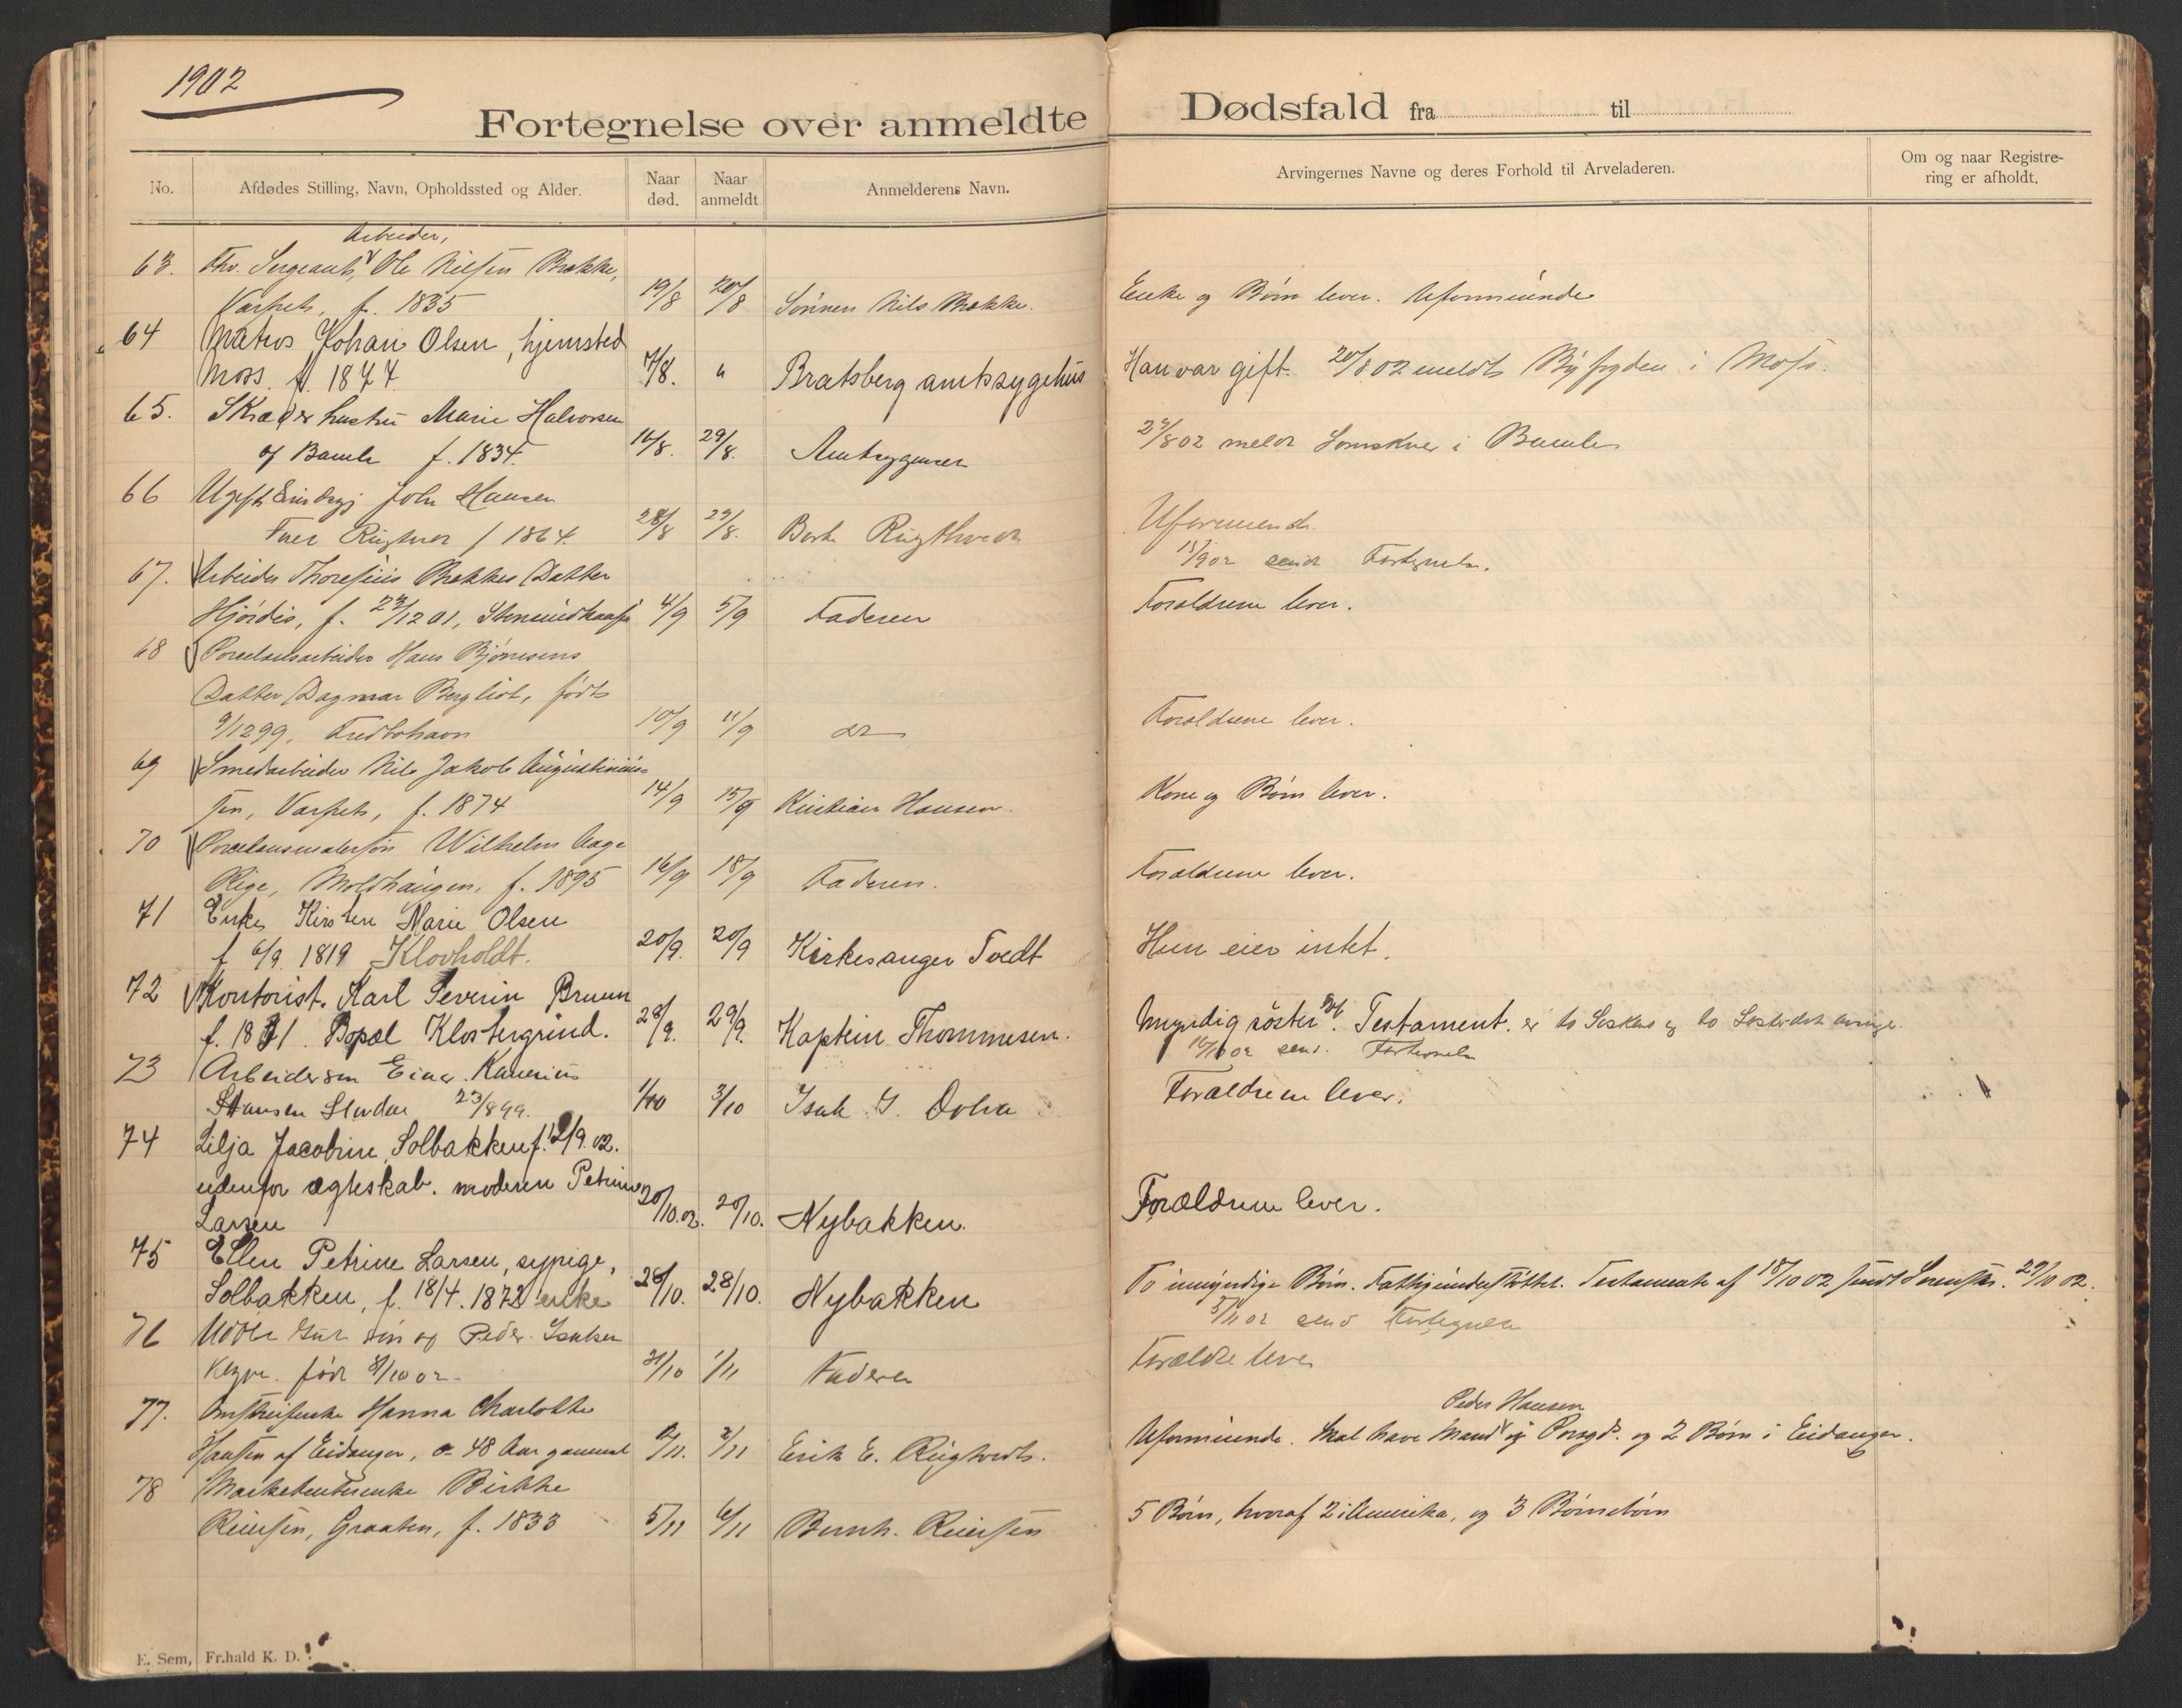 1902
Fortegnelse over anmeldte Dødsfald fra til
No.
Afdødes Stilling, Navn, Opholdssted og Alder.
Naar død.
Naar anmeldt
Anmelderens Navn.
Arvingernes Navne og deres Forhold til Arveladeren.
Om og naar Registre-
ring er afholdt.
Arbeider,
63. Fhv. Sergeant, Ole Nilsen Brekke,
f. 1835 19/8 20/8 Sønnen Nils Brekke. Enke og Børn lever. Uformuende
64 Matros Johan Olsen, hjemsted
Moss. f. 1877. 7/8. " Bratsberg amtssygehus Han var gift. 20/8 02 meldt Byfogden i Moss.
65. Skrædderhustru Marie Halvorsen
af Bamle f. 1834. 16/8. 29/8. 29/8 02 meldt i Bamle
66 Ugift John Hansen
f 1864. 28/8 29/8. Uformuende.
15/9 02 sendt Fortegnelse.
67. Arbeider Brekkes Datter
Hjørdis, f. 1201, 4/9 5/9 Faderen Forældrene lever.
68 Porcelænsarbeider Hans Bjørnsens
Datter Dagmar Bergliot, født
9/1299, 10/9 11/9 do Forældrene lever.
69 Smedarbeider Nils Jakob
sen, f. 1874 14/9 15/9 Kristian Hansen. Kone og Børn lever.
70 Porcelænsmalersøn Wilhelm Aage
Rige, f. 1895 16/9 18/9 Faderen. Forældrene lever.
71 Enke Kirsten Marie Olsen
f 6/9 1819 Klovholdt. 20/9. 20/9 Kirkesanger Tvedt Hun eier intet.
72 Kontorist. Karl Severin Bruun
f. 1871. Bopæl Klostergrund. 28/9. 29/9. Kaptein Thommesen. Umyndig søster. Testament.
16/10 02 send. Fortegnelse
73 Arbeidersøn Einar
Hansen 23/8 99. 1/10 3/10 Isak Forældrene lever.
74 Lilja Jacobine, Solbakken f. 12/9.02.
udenfor ægteskab. moderen Petrine
Larsen 20/10.02. 20/10. Nybakken. Forældrene lever.
75 Ellen Petrine Larsen, sypige,
Solbakken, f. 18/4. 1872 enke 28/10. 28/10. Nybakken To umyndige Børn. Fattigunderstøttet. Testamente af 18/10 02 sendt 29/10 02.
5/11 02 send Fortegnelse
76 søn af Peder Isaksen
født 31/10 1/11 Faderen Forældre lever
77. Hanna Charlotte
Hansen af Eidanger, 48 Aar gammel 2/11 Erik E. Peder Hansen
Uformuende. Skal have Mand og 2 Børn i Eidanger.
78
Reiersen, Graaten, f. 1833 5/11 6/11 Bernh. Reiersen 5 Børn, hvoraf 2 i Amerika, og 3 Børnebørn
E. Sem, Fr.hald K. D.